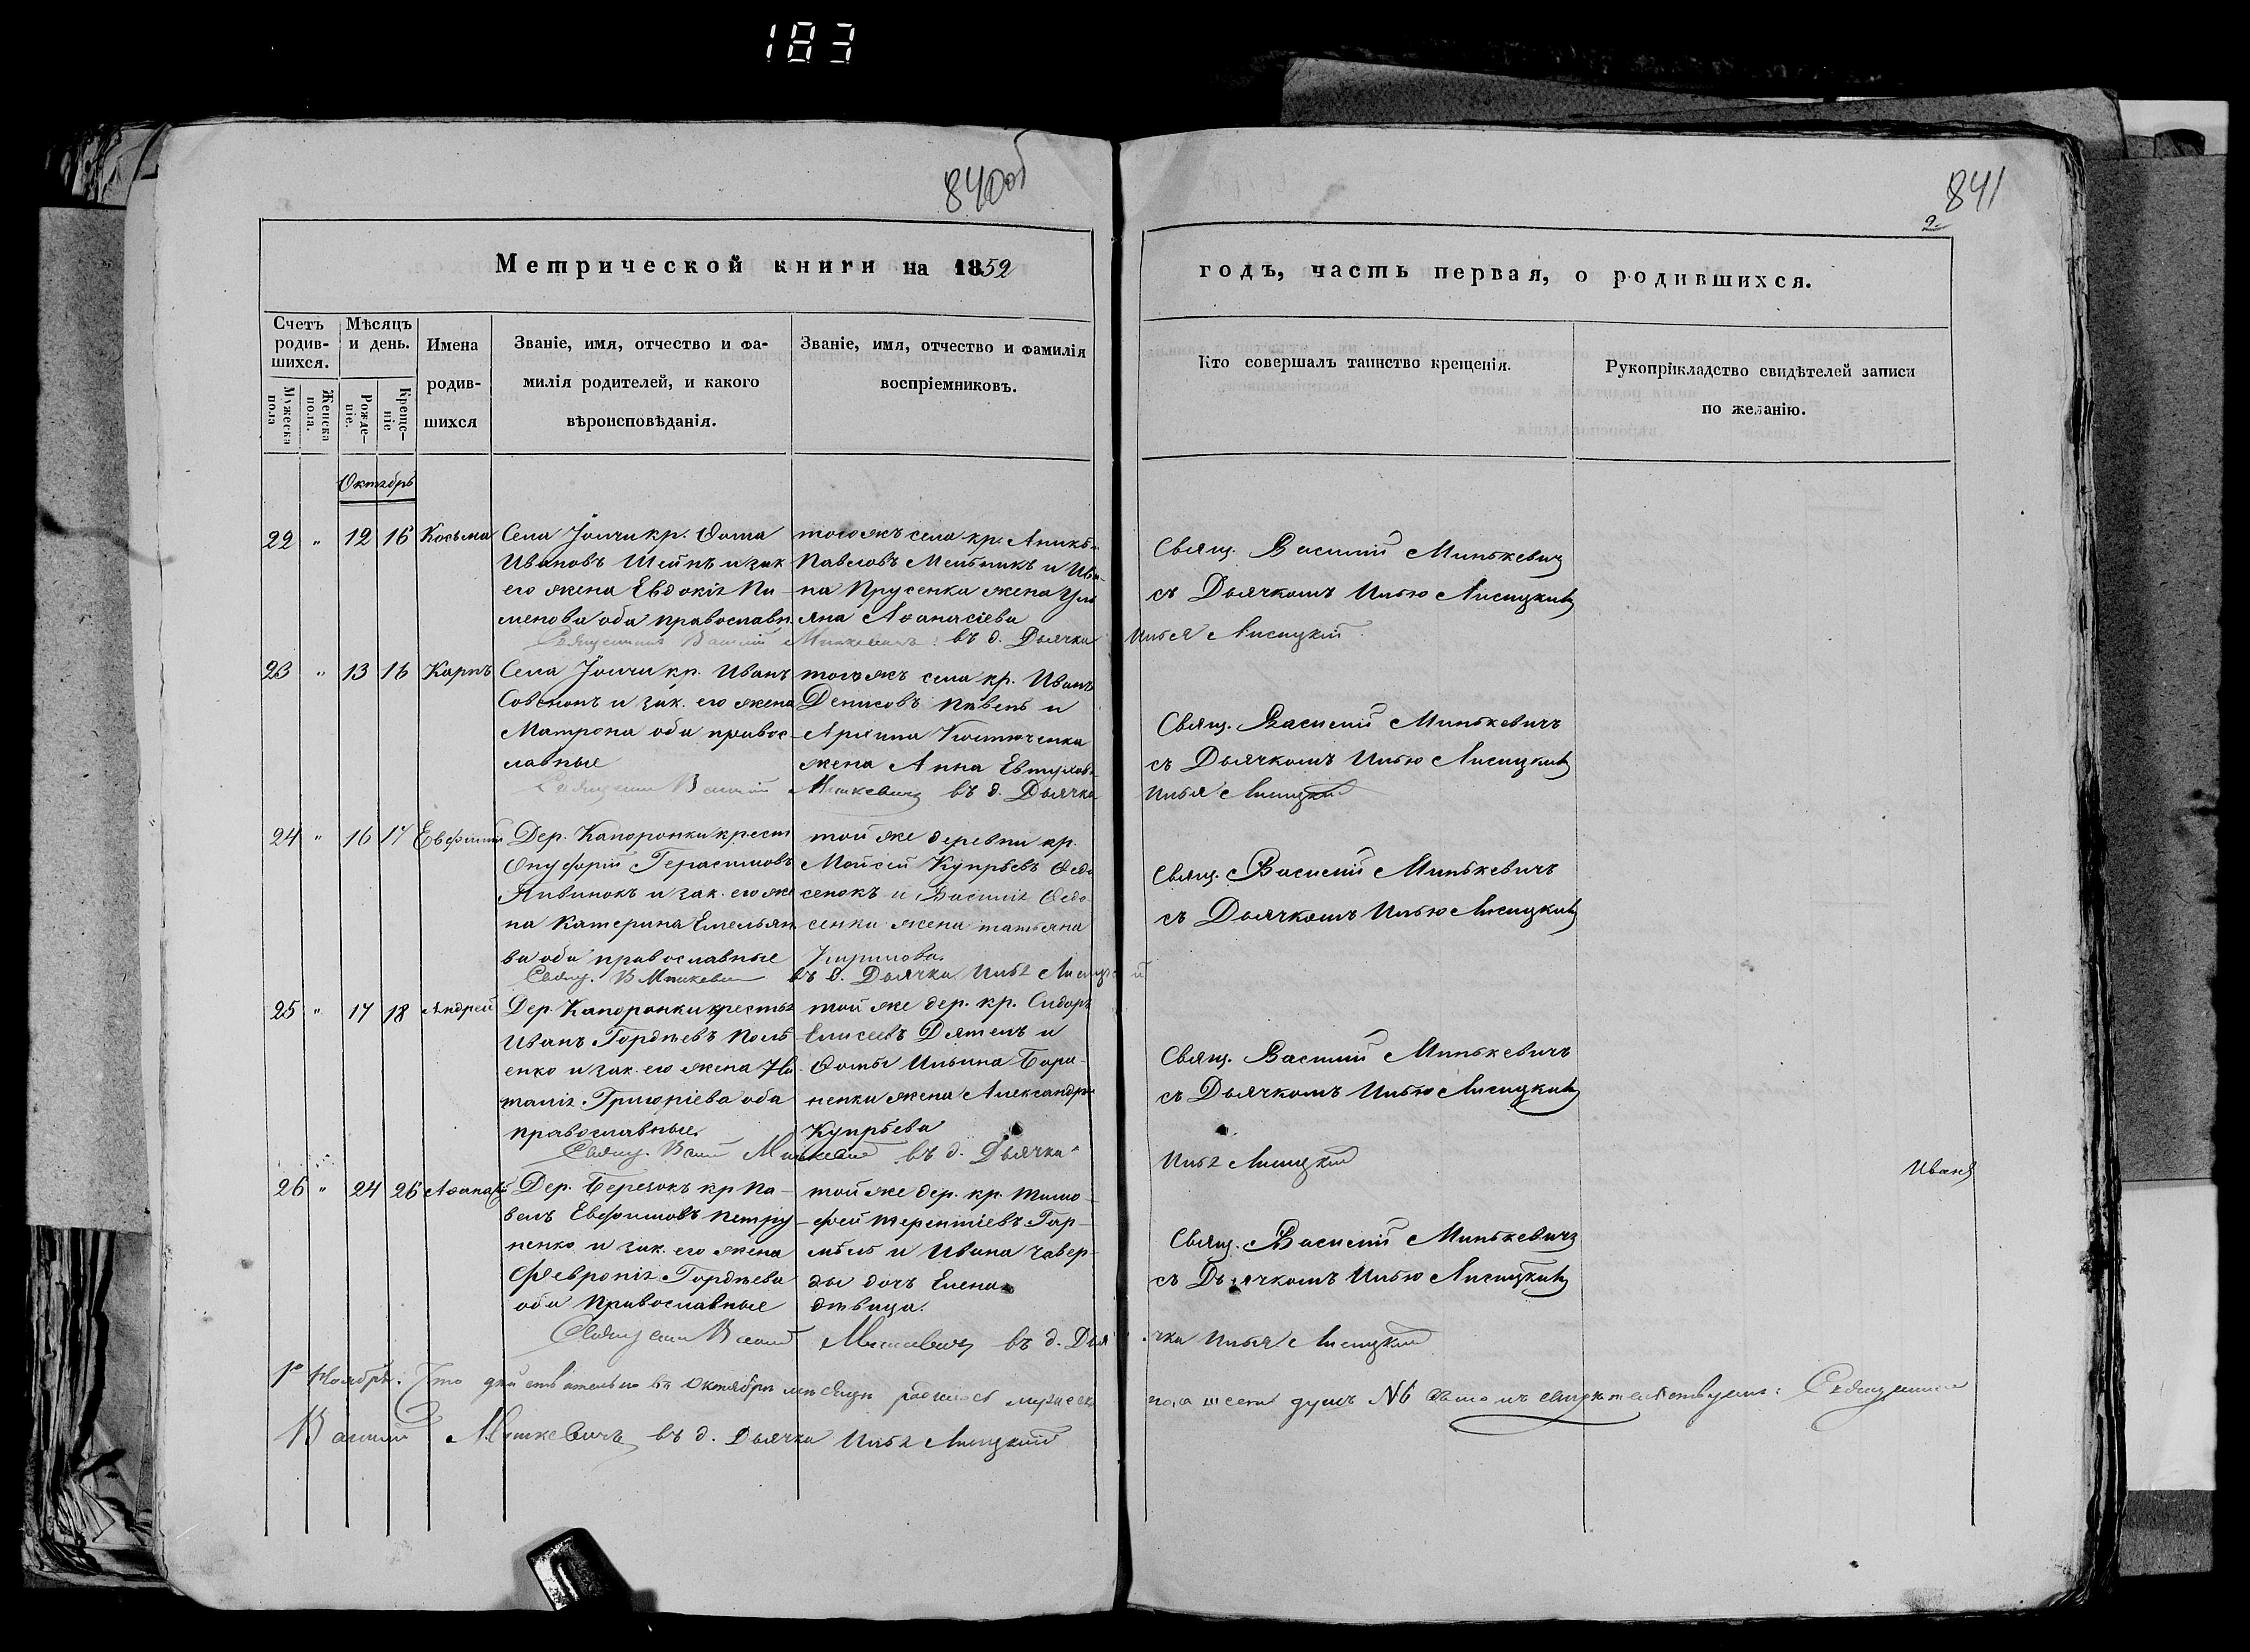 183
840об
841
2.
Метрической книги на 1852
годъ, часть первая, о родившихся.
Счетъ родив-шихся.
Мужеска пола
Женска пола.
Мѣсяцъ и день.
Рожде-ніе.
Креще-ніе
Имена
родив-
шихся
Званіе, имя, отчество и фа-
милія родителей, и какого
вѣроисповѣданія.
Званіе, имя, отчество и фамилія
воспріемниковъ.
Кто совершалъ таинство крещенія.
Рукоприкладство свидѣтелей записи
по желанію.
Октябрь
22 " 12 16 Косьма
Села Іолчи кр. Ѳома
Ивановъ и зак
его жена Евдокія Пи-
менова оба православн
тогожъ села кр.
Павловъ Мельникъ и Ива-
на Прусенка жена Уль
яна Аѳанасіева
Свящ. Василій Минькевич
съ Дьячкомъ Ильею Лисицкимъ
въ д. Дьячка Илья Лисицкій
23 " 13 16 Карпъ
Села Іолчи кр. Иванъ
и зак. его жена
Матрона оба правос-
лавные
тогожъ села кр. Иванъ
Денисовъ Пивень и
Костюченка
жена Анна
Свящ. Василій Минькевичъ
съ Дьячкомъ Ильею Лисицкимъ
Минкевичъ въ д. Дьячка Илья Лисицкій
24 " 16 17 Евфимій
Дер. Капоронки крест
Онуфрій Герасимовъ
и зак. его же
на Катерина Емельяно
ва оба православные
той же деревни кр.
Мойсей Купріевъ Ѳедо
сенокъ и Ѳедо
сенки жена татьяна
Свящ. Василій Минькевичъ
съ Дьячкомъ Ильею Лисицкимъ
Свящ. В Минкевич въ д. Дьячка Илья Лисицкій
25 " 17 18 Андрей
Дер. Капоронки крестья
Иванъ Гордѣевъ
енко и зак. его жена На
талія Григоріева оба
православные
той же дер. кр. Сидоръ
Елисеевъ Дятелъ и
Ѳомы Ильина Бара-
ненки жена Александра
Купріева
Свящ. Василій Минькевичъ
съ Дьячкомъ Ильею Лисицкимъ
въ д. Дьячка Илья Лисицкій
Иванъ
26 " 24 26 Аѳанасій
Дер. Березокъ кр Па-
велъ Евфимовъ Петру-
ненко и зак. его жена
Февронія Гордѣева
оба православные
той же дер. кр. Тимо-
фей терентіевъ Гар-
мѣль и Ивана Чавер-
ды дочь Елена
дѣвица.
Свящ. Василій Минькевичъ
съ Дьячкомъ Ильею Лисицкимъ
Минкевичъ въ д. Дьячка Илья Лисицкій
1го Ноября. Что действительно въ Октябрѣ мѣсяцѣ мужеск
пола душъ №6 свидетельствуемъ: Священникъ
Василій Минкевичъ въ д. Дьячка Илья Лисицкій